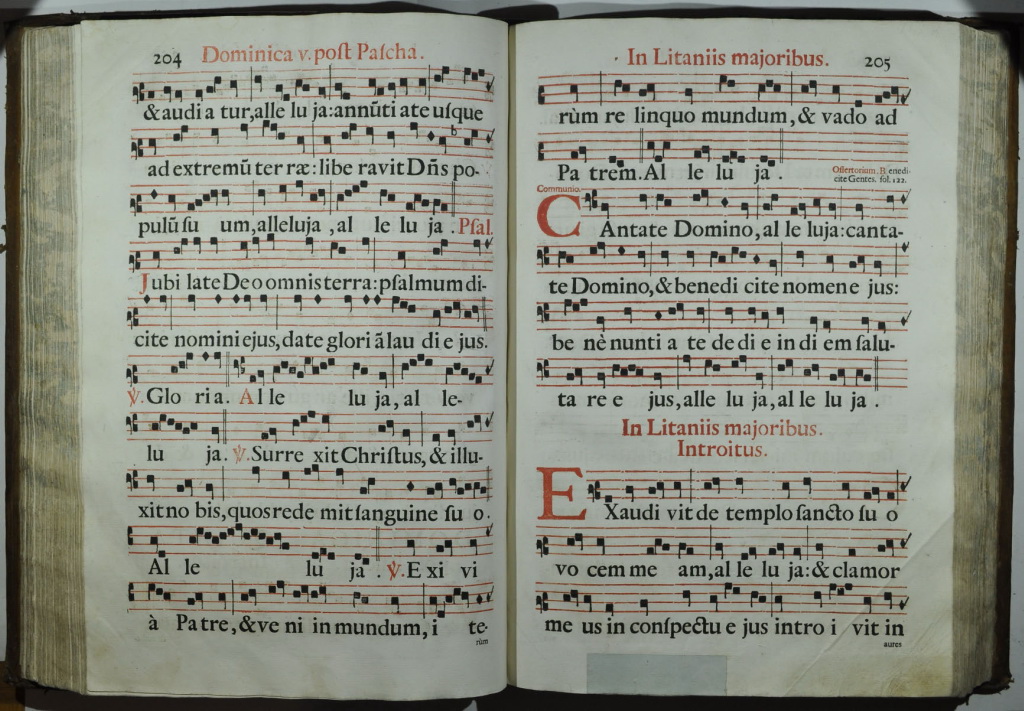 204 Dominica v. poſt Paſcha.
& audi a tur, alle lu ja: annūti ate uſque
ad extremū ter ræ: libe ravit Dñs po-
pulū ſu um, alleluja, al le lu ja. Pſal.
Jubi late Deo omnis terra: pſalmum di-
cite nomini ejus, date glori ā lau di e jus.
℣. Glo ri a. Al le lu ja, al le-
lu ja. ℣. Surre xit Chriſtus, & illu-
xit no bis, quos rede mit ſanguine ſu o.
Al le lu ja. ℣. E xi vi
à Pa tre, & ve ni in mundum, i te-
rùm
In Litaniis majoribus. 205
rùm re linquo mundum, & vado ad
Pa trem. Al le lu ja.
Offertorium. Benedi-
cite Gentes. fol. 122.
Communio.
CAntate Domino, al le luja: canta-
te Domino, & benedi cite nomen e jus:
be nè nunti a te de di e in di em ſalu-
ta re e jus, alle lu ja, al le lu ja.
In Litaniis majoribus.
Introitus.
EXaudi vit de templo ſancto ſu o
vo cem me am, al le lu ja: & clamor
me us in conſpectu e jus intro i vit in
aures